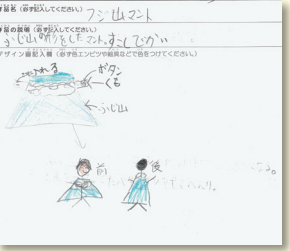 作品名(必ず記入してください。) フジ山マント
作品の説明(必ず記入してください。)
ふじ山の形をしたマント。すこしでかい
デザイン画記入欄(必ず色エンピツや絵具などで色をつけてください。)
ボタン
くも
ふじ山
前 後